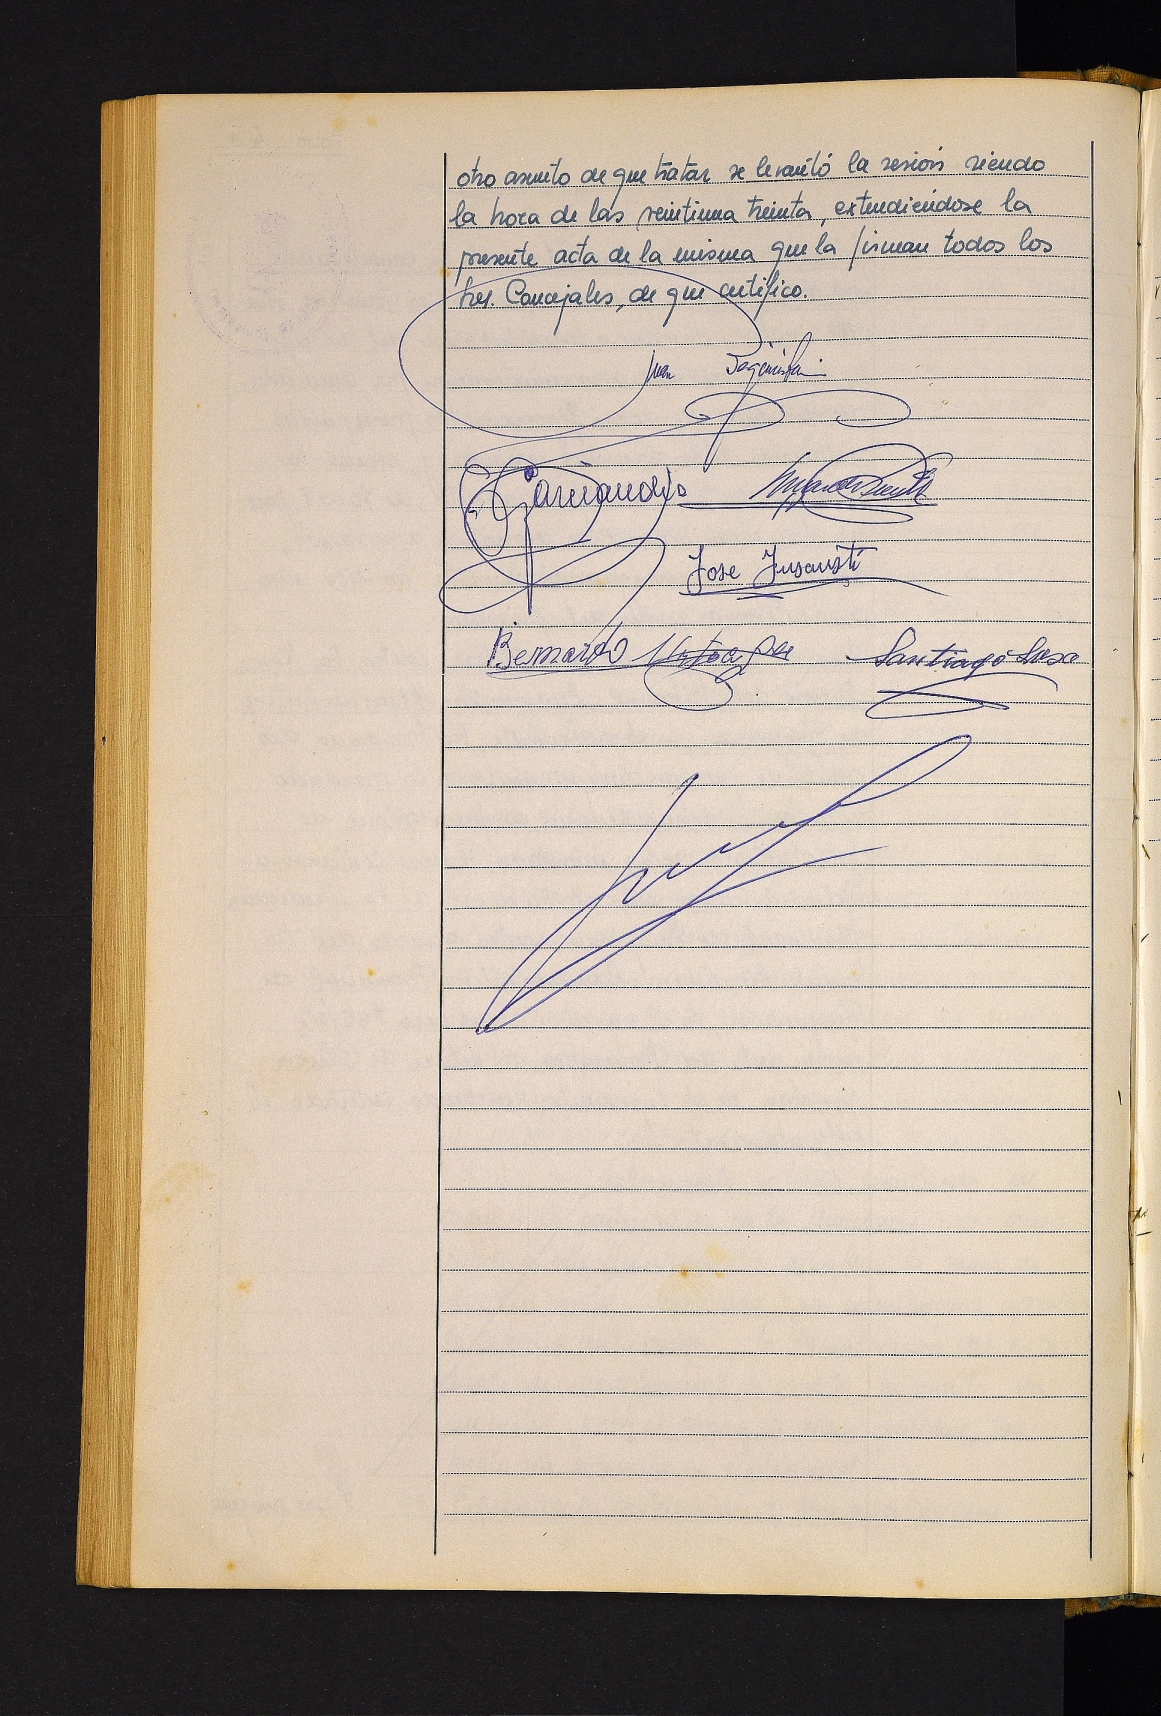 otro asunto de que tratar se levantó la sesión siendo
la hora de las veintiuna treinta, extendiéndose la
presente acta de la misma que la firman todos los
Sres. Concejales, de que certifico.
Juan
Jose Insausti
Bernardo
Santiago Sosa